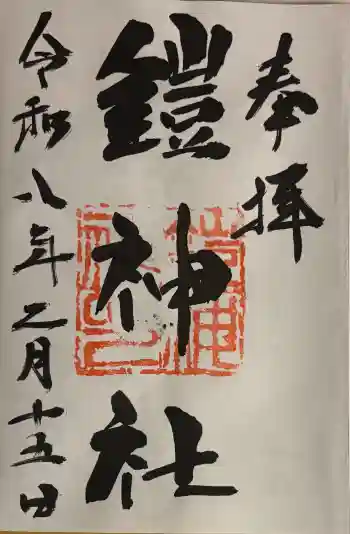 奉拝
鎧神社
令和八年二月十五日